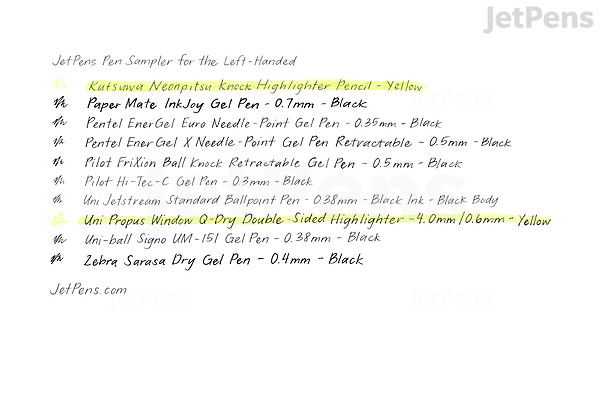 JetPens
JetPens Pen Sampler for the Left-Handed
Kutsuwa Neonpitsu Knock Highlighter Pencil - Yellow
Paper Mate InkJoy Gel Pen - 0.7mm - Black
Pentel EnerGel Euro Needle-Point Gel Pen - 0.35mm - Black
Pentel EnerGel X Needle-Point Gel Pen Retractable - 0.5mm - Black
Pilot FriXion Ball Knock Retractable Gel Pen - 0.5mm - Black
Pilot Hi-Tec-C Gel Pen - 0.3mm - Black
Uni Jetstream Standard Ballpoint Pen - 0.38mm - Black Ink - Black Body
Uni Propus Window Q-Dry Double-Sided Highlighter - 4.0mm/0.6mm - Yellow
Uni-ball Signo UM-151 Gel Pen - 0.38mm - Black
Zebra Sarasa Dry Gel Pen - 0.4mm - Black
JetPens.com